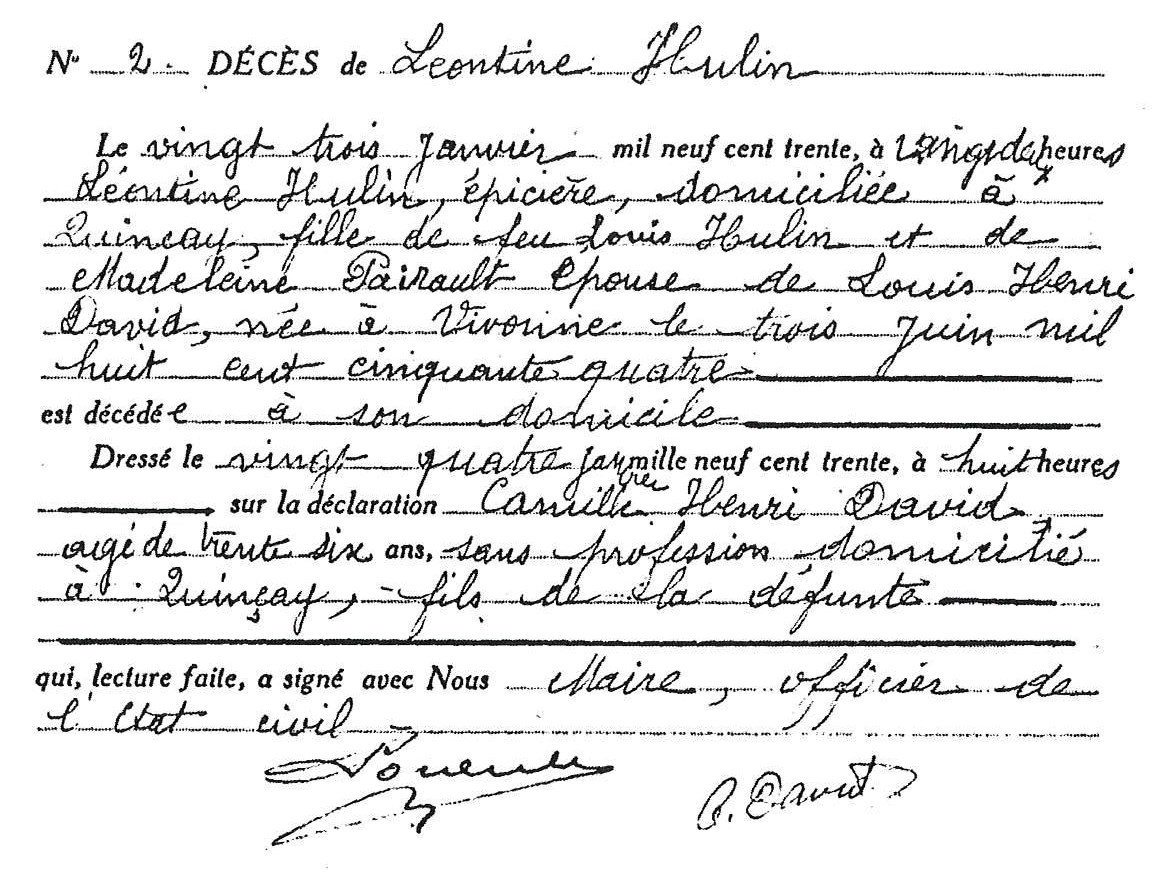 N° 2. DÉCÈS de Leontine Hulin
Le vingt trois Janvier mil neuf cent trente, à vingt deux heures
Léontine Hulin, épicière, domiciliée à
Quincay, fille de feu Louis Hulin et de
Madeleine Pairault Epouse de Louis Henri
David, née à Vivonne le trois Juin mil
huit cent cinquante quatre
est décédée à son domicile
Dressé le vingt quatre Janvier mille neuf cent trente, à huit heures
sur la déclaration Camille Henri David,
agé de trente six ans, sans profession domicilié
à Quinçay, fils de la défunte
qui, lecture faite, a signé avec Nous Maire, officier de
l'Etat civil
David